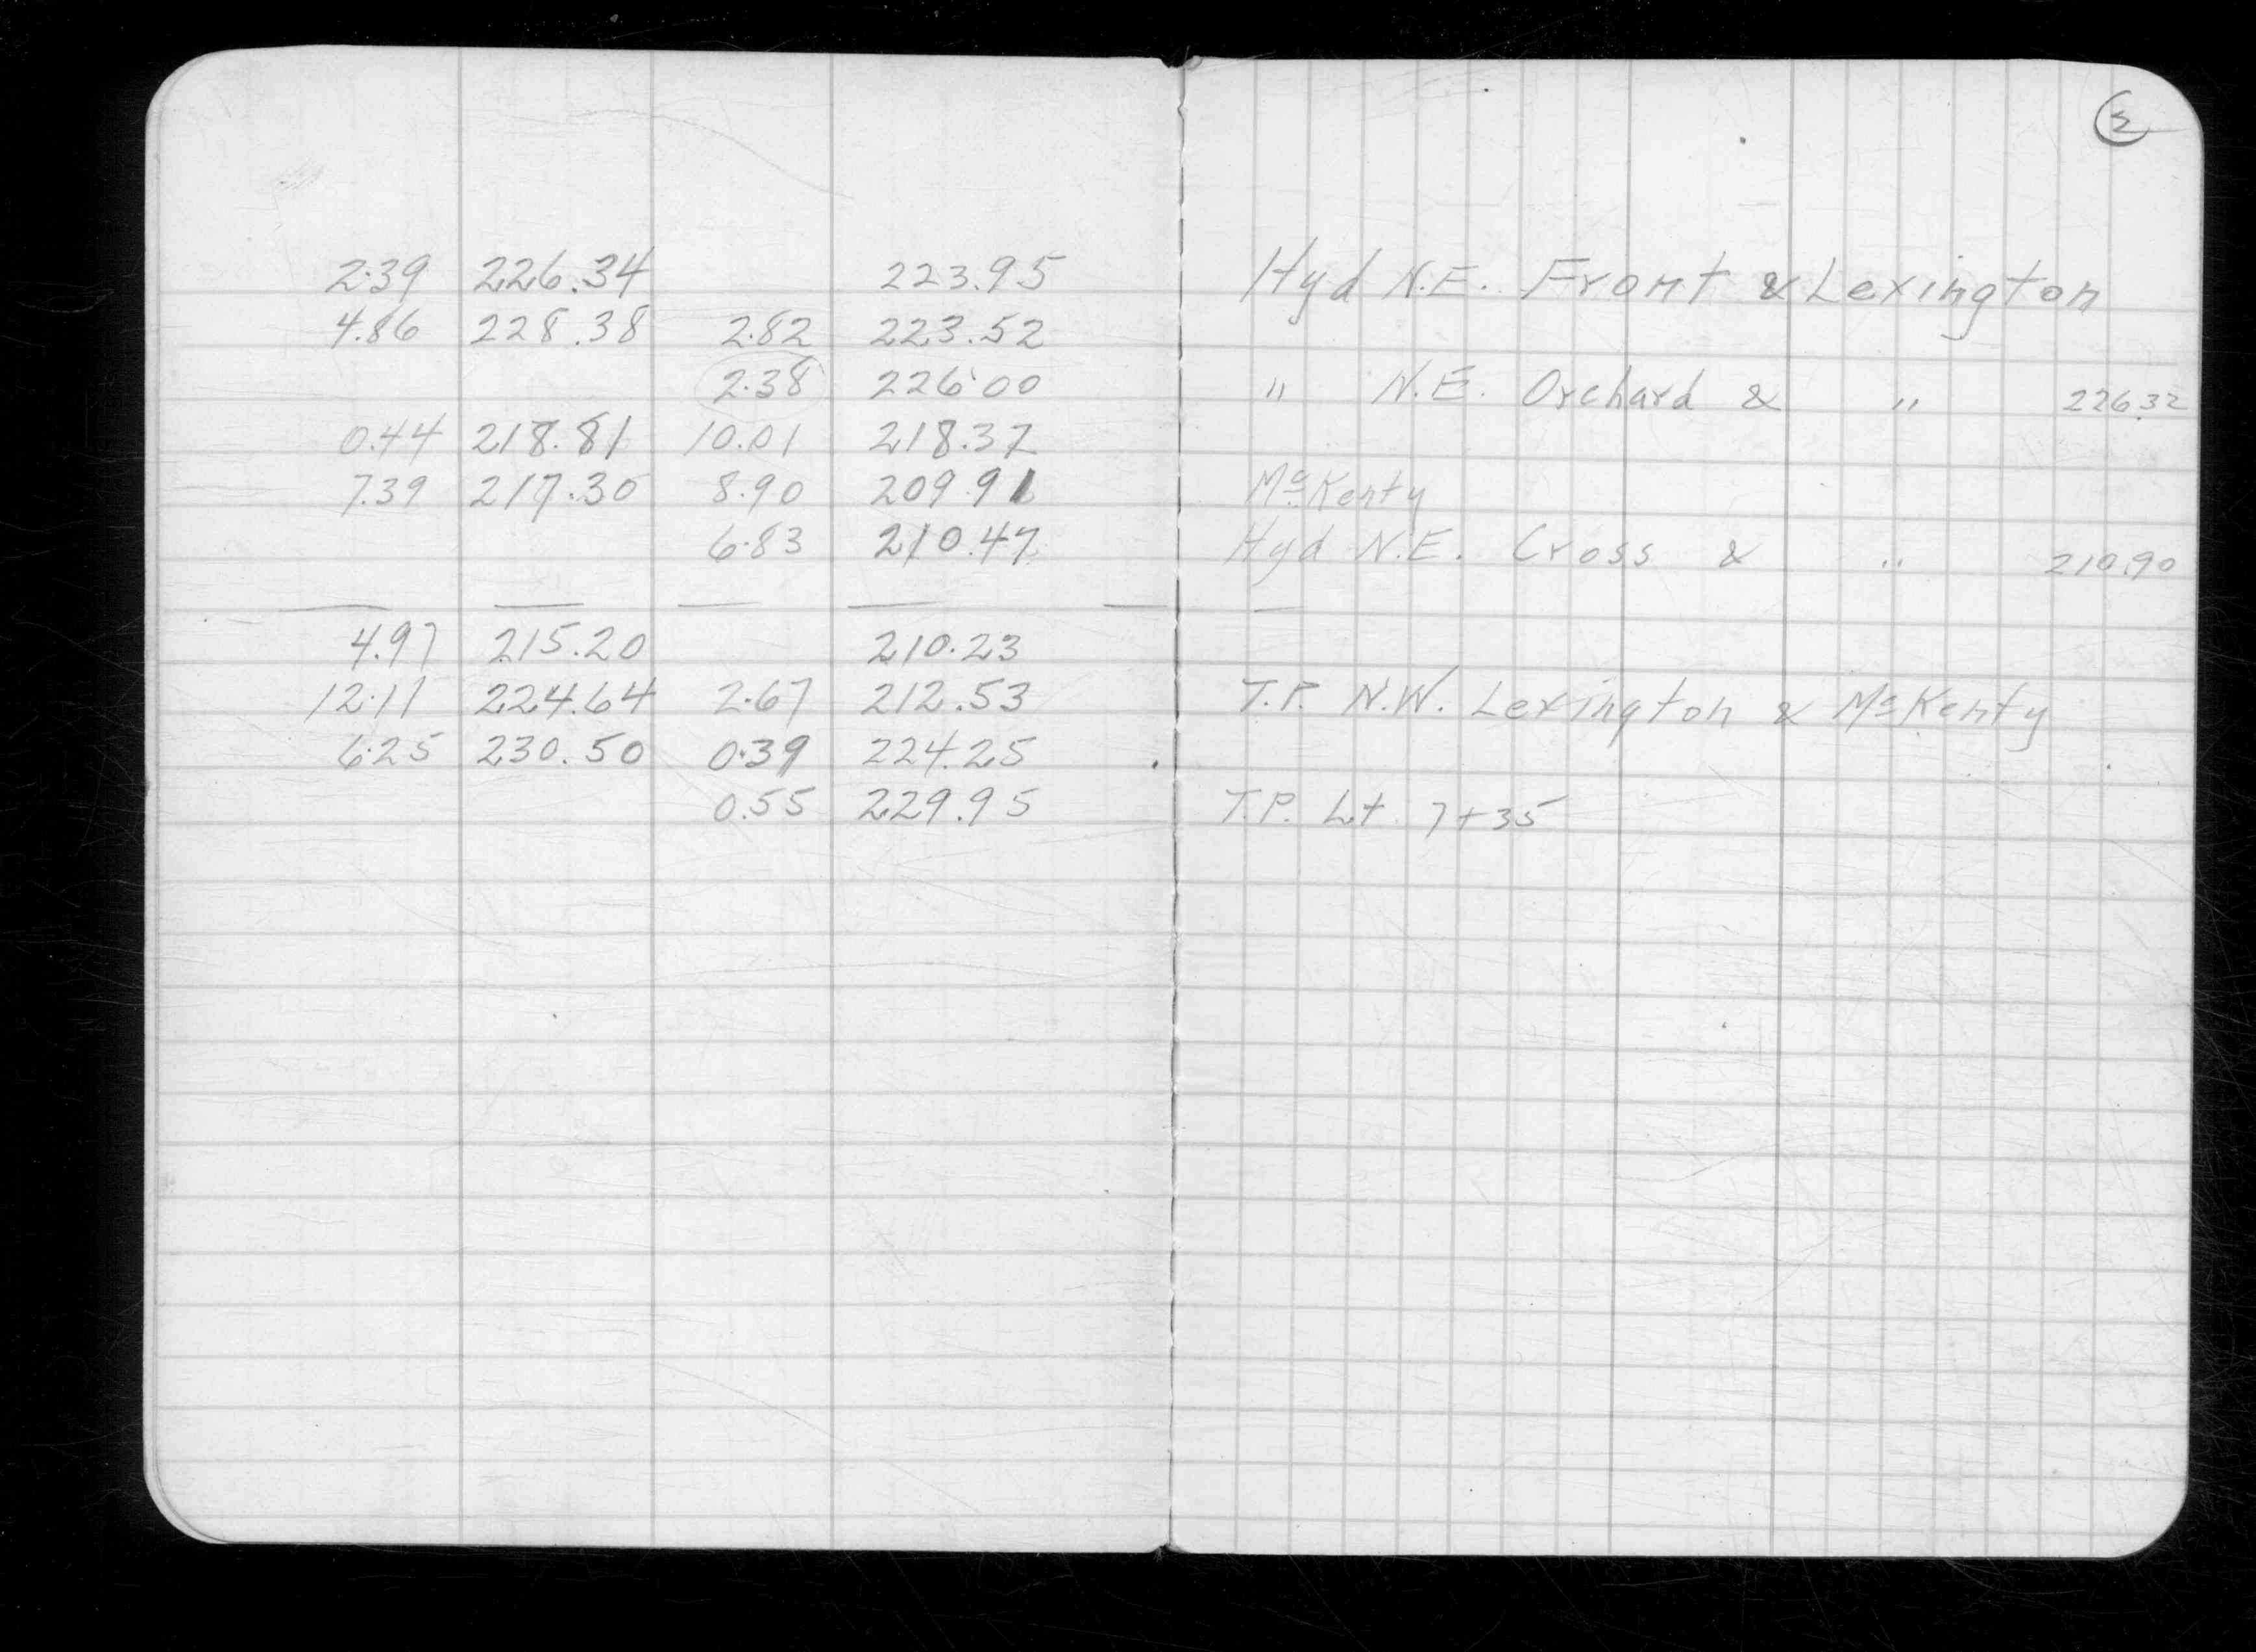 2
2.39 226.34 223.95 Hyd N.E. Front & Lexington
4.86 228.38 2.82 223.52
2.38 226.00 " N.E. Orchard & " 226.32
0.44 218.81 10.01 218.37
7.39 217.30 8.90 209.91 McKenty
6.83 210.47 Hyd N.E. Cross & " 210.90
4.97 215.20 210.23
12.11 224.64 2.67 212.53 T.P. N.W. Lexington & McKenty
6.25 230.50 0.39 224.25
0.55 229.95 T.P. Lt 7+35